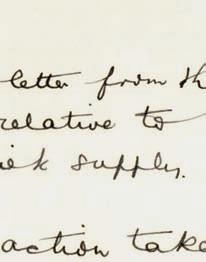 letter from th
relative to
supply.
action take